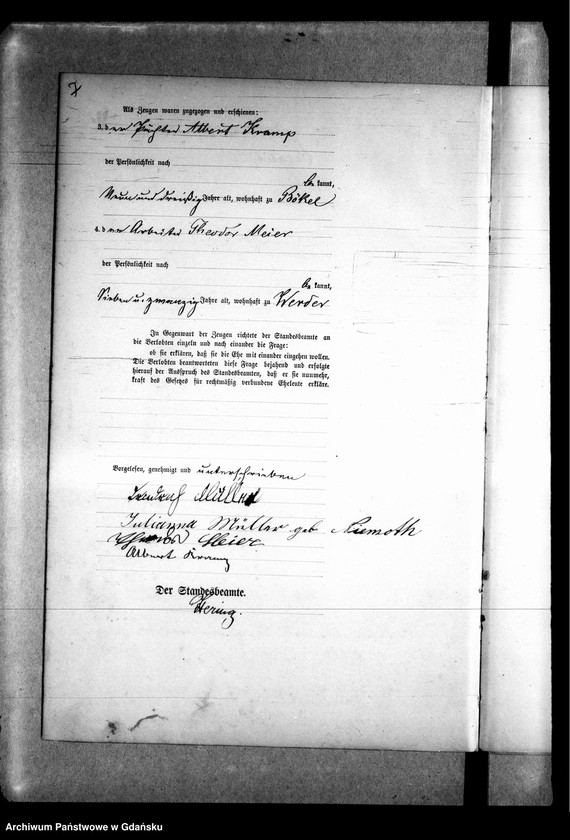 Als Zeugen waren zugezogen und erschienen:
3. den Pächter Albert Kramp
der Persönlichkeit nach
be kannt,
Neun und dreißig Jahre alt, wohnhaft zu Bökel
4. den Arbeiter Theodor Meier
der Persönlichkeit nach
be kannt,
Sieben u. zwanzig Jahre alt, wohnhaft zu Werder
In Gegenwart der Zeugen richtete der Standesbeamte an
die Verlobten einzeln und nach einander die Frage:
ob sie erklären, daß sie die Ehe mit einander eingehen wollen.
Die Verlobten beantworteten diese Frage bejahend und erfolgte
hierauf der Ausspruch des Standesbeamten, daß er sie nunmehr,
kraft des Gesetzes für rechtmäßig verbundene Eheleute erkläre.
Vorgelesen, genehmigt und unterschrieben
Müller
Julianna Müller geb Niemoth
Theodor Meier
Albert Kramp
Der Standesbeamte.
Hering.
Archiwum Państwowe w Gdańsku